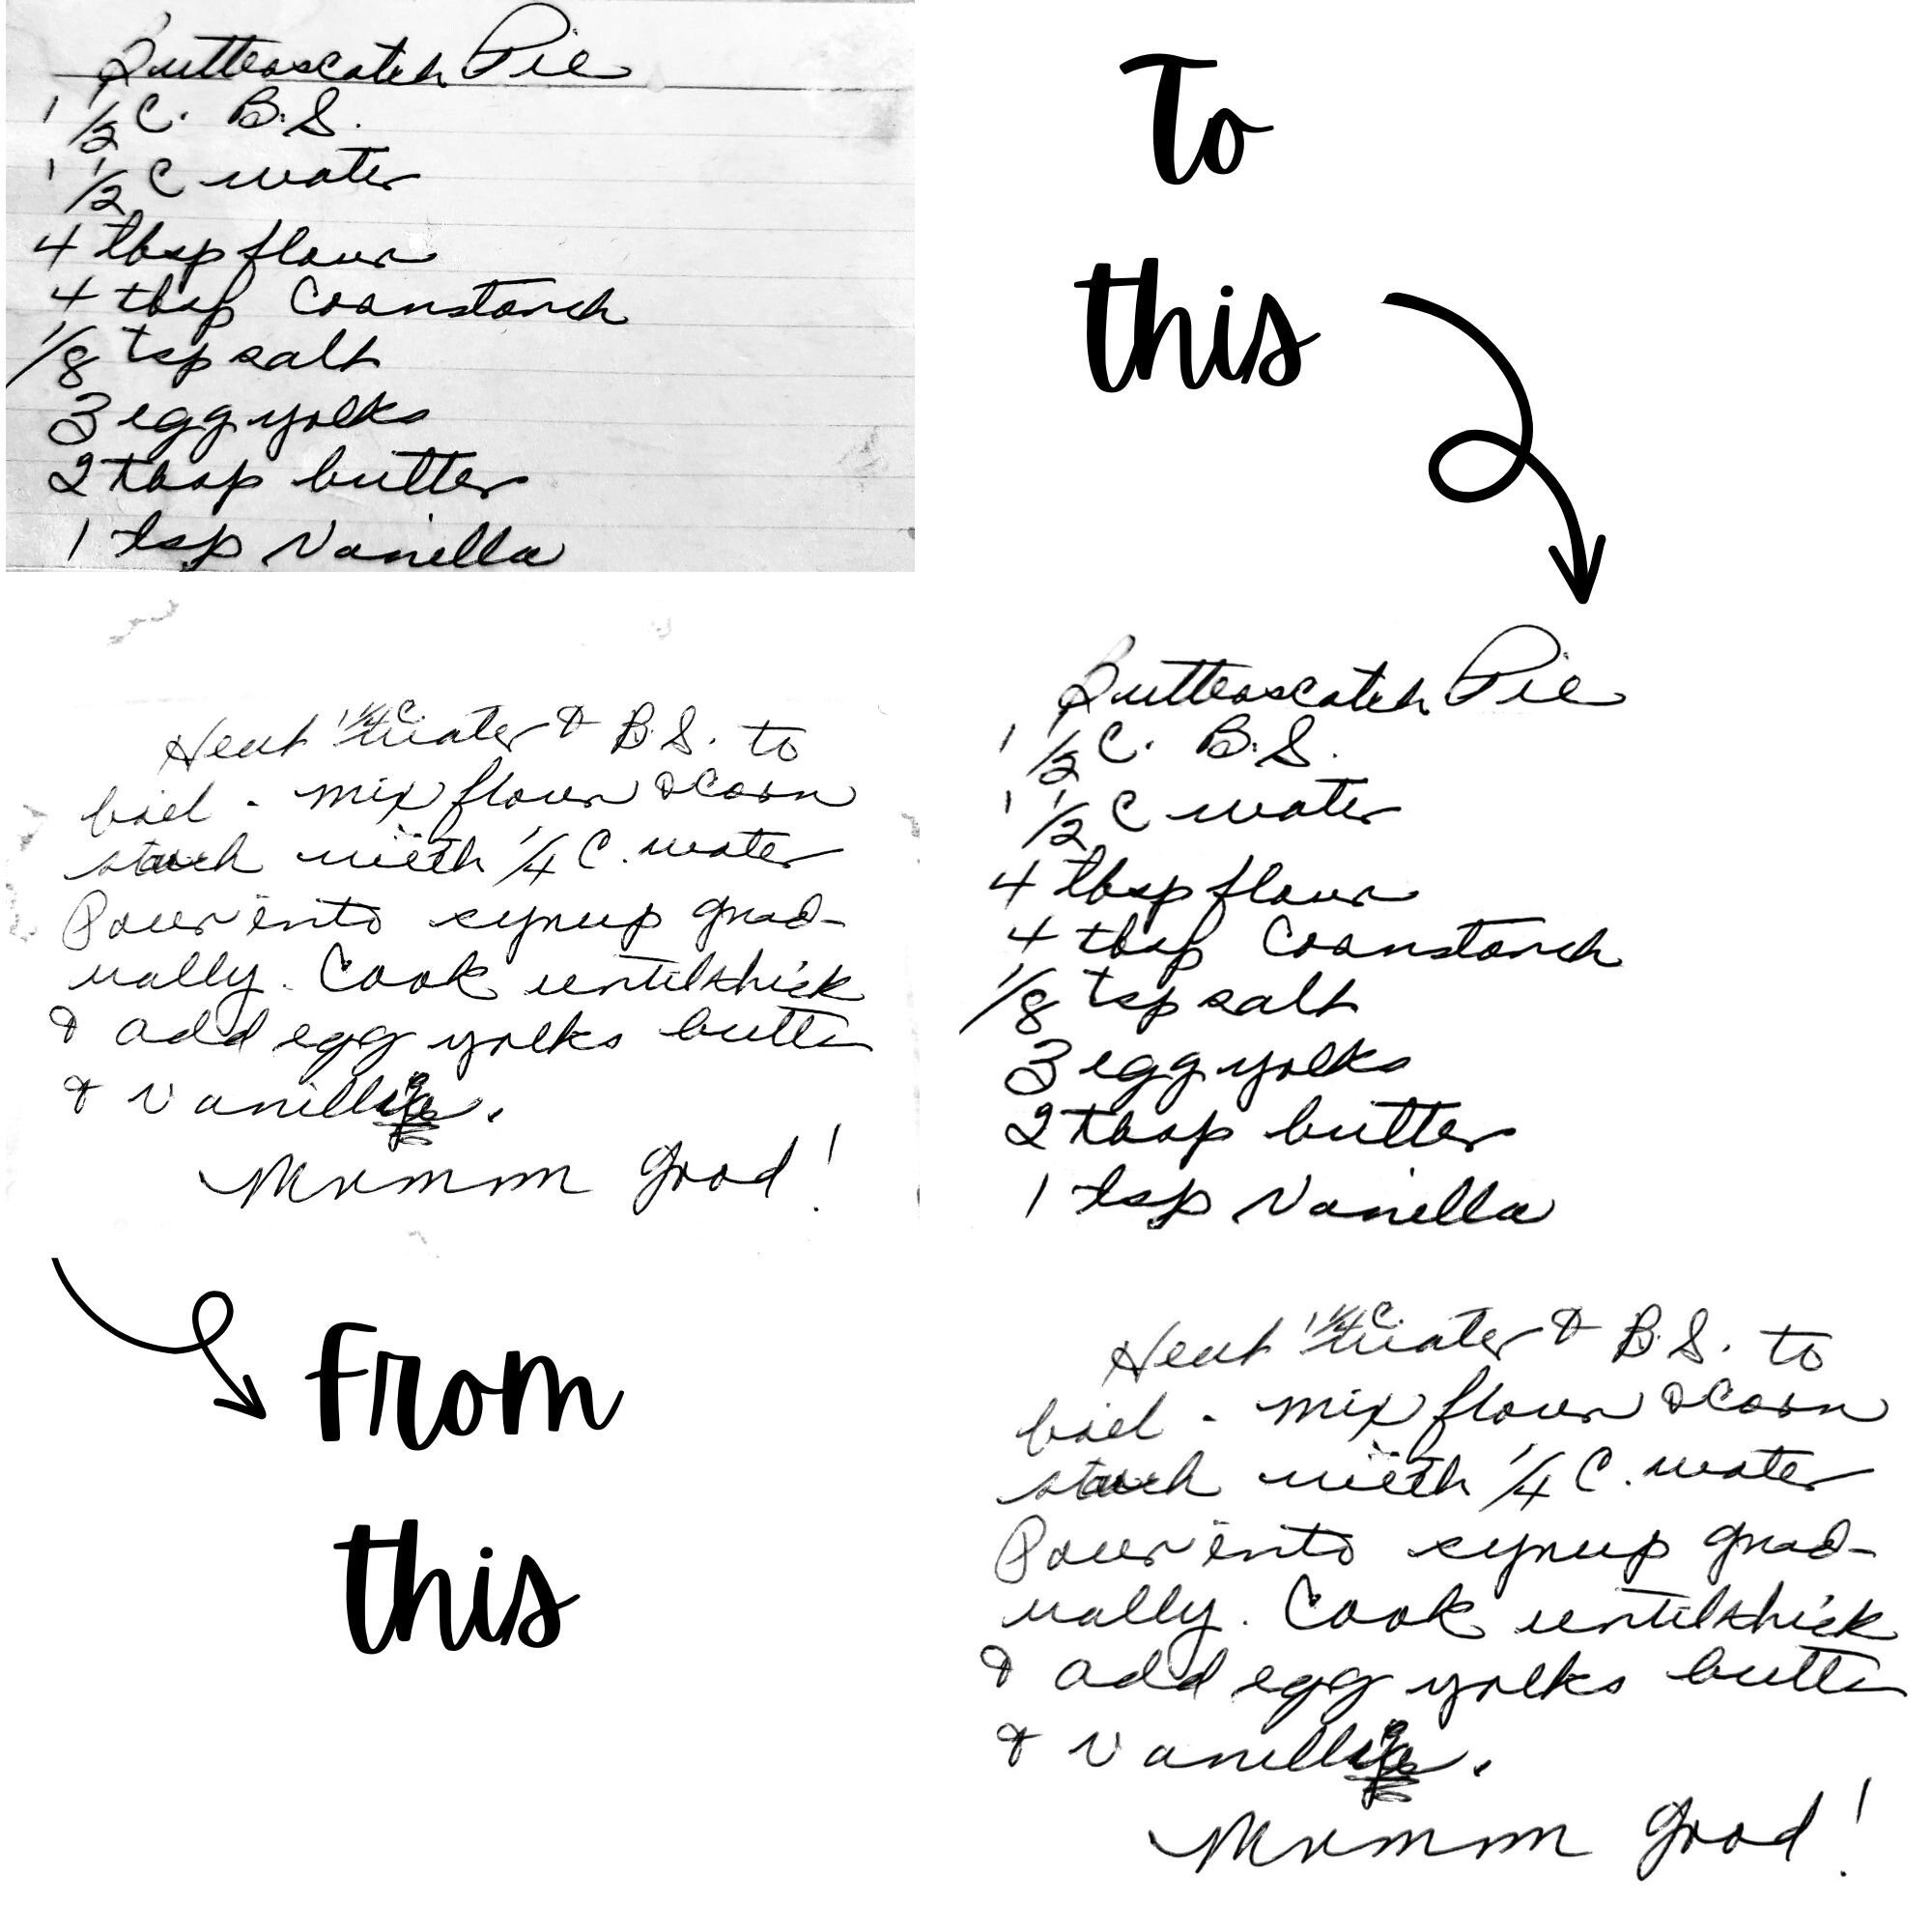 Butterscotch Pie
1 1/2 C. B.S.
1 1/2 C water
4 tbsp flour
4 tbsp Cornstarch
1/8 tsp salt
3 egg yolks
2 tbsp butter
1 tsp Vanilla
Heat 1 1/4 C. water & B.S. to
boil - mix flour & Corn
starch with 1/4 C. water
Pour into syrup grad-
ually. Cook until thick
& add egg yolks butter
& Vanilla.
Mmmmm good!
From
this
To
this
Butterscotch Pie
1 1/2 C. B.S.
1 1/2 C water
4 tbsp flour
4 tbsp Cornstarch
1/8 tsp salt
3 egg yolks
2 tbsp butter
1 tsp Vanilla
Heat 1 1/4 C. water & B.S. to
boil - mix flour & Corn
starch with 1/4 C. water
Pour into syrup grad-
ually. Cook until thick
& add egg yolks butter
& Vanilla.
Mmmmm good!